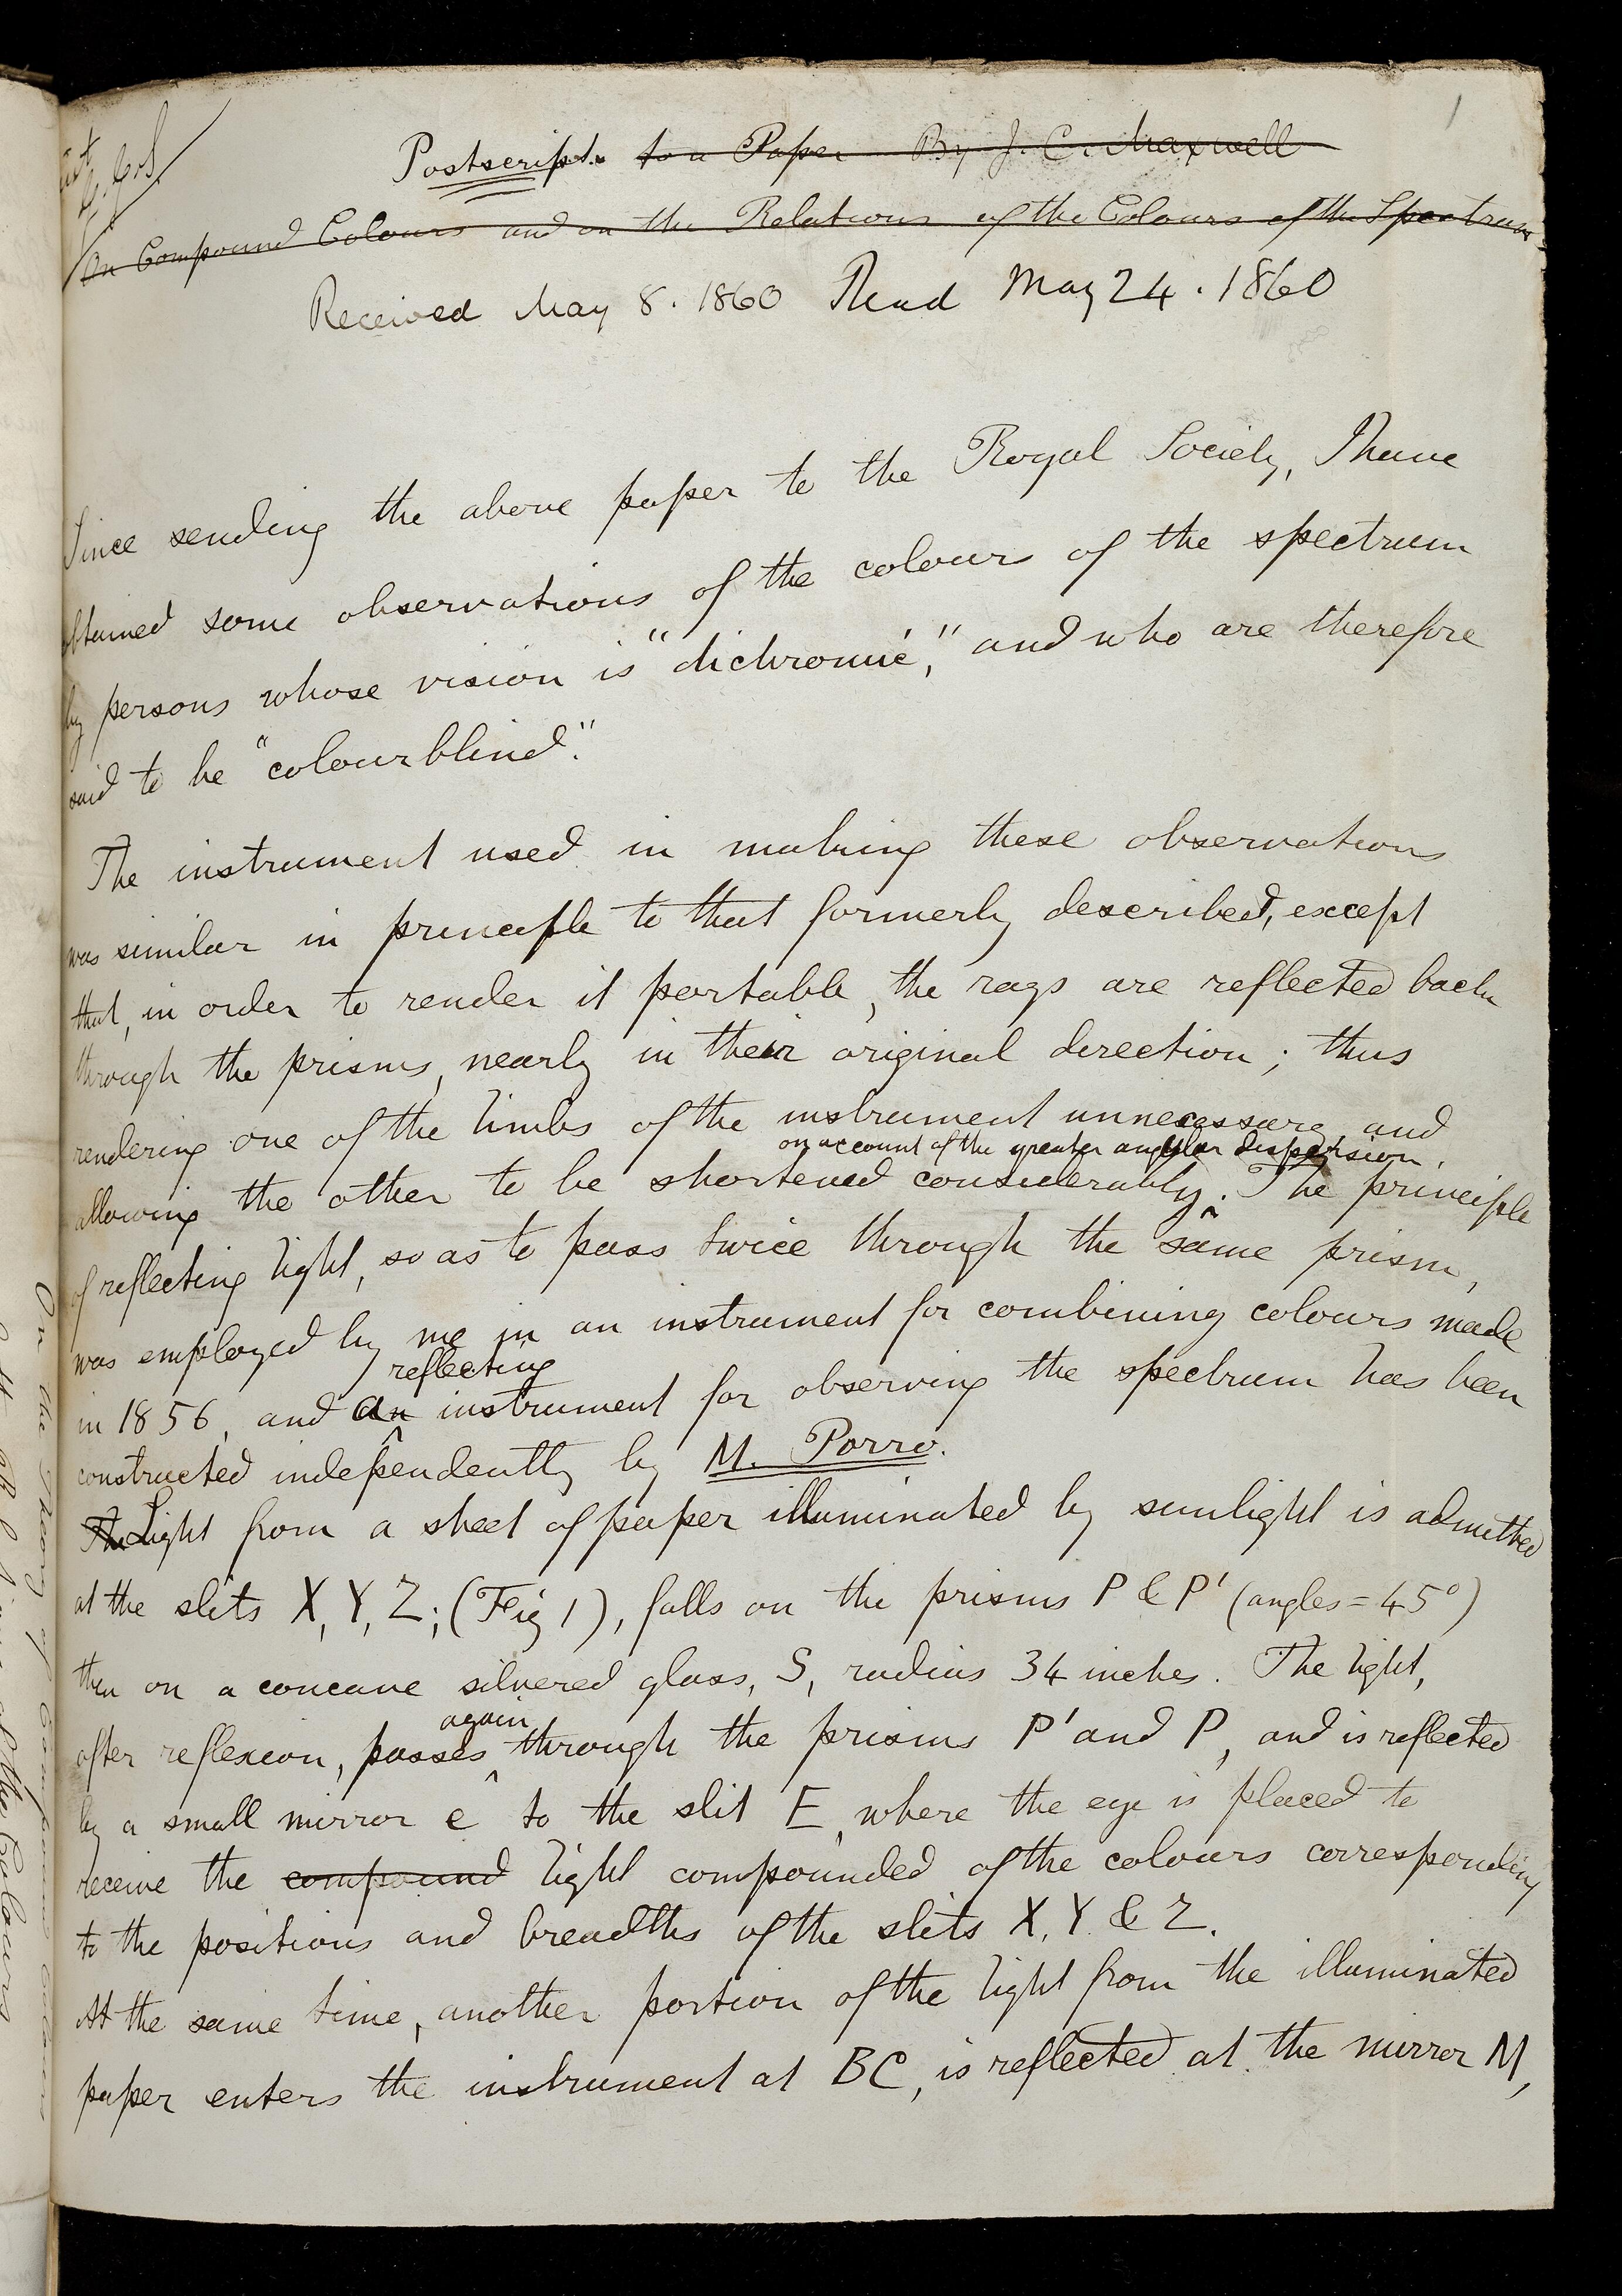 1
Postscript. to a Paper By J. C. Maxwell
On Compound Colours and on the Relations of the Colours of the Spectrum
Received May 8. 1860 Read May 24. 1860
Since sending the above paper to the Royal Society, I have
obtained some observations of the colours of the spectrum
by persons whose vision is "dichromic", and who are therefore
said to be "colourblind".
The instrument used in making these observations
was similar in principle to that formerly described, except
that, in order to render it portable, the rays are reflected back
through the prisms, nearly in their original direction; thus
rendering one of the limbs of the instrument unnecessary and
on account of the greater angular dispersion.
allowing the other to be shortened considerably. The principle
of reflecting light, so as to pass twice through the same prism,
was employed by me in an instrument for combining colours made
reflecting
in 1856, and an instrument for observing the spectrum has been
constructed independently by M. Porro.
The Light from a sheet of paper illuminated by sunlight is admitted
at the slits X, Y, Z; (Fig 1), falls on the prisms P & P' (angles = 45°)
then on a concave silvered glass, S, radius 34 inches. The light,
again
after reflexion, passes through the prisms P' and P, and is reflected
by a small mirror e to the slit E, where the eye is placed to
receive the compound light compounded of the colours corresponding
to the positions and breadths of the slits X, Y & Z.
At the same time, another portion of the light from the illuminated
paper enters the instrument at BC, is reflected at the mirror M,
On the Theory of Compound Colours